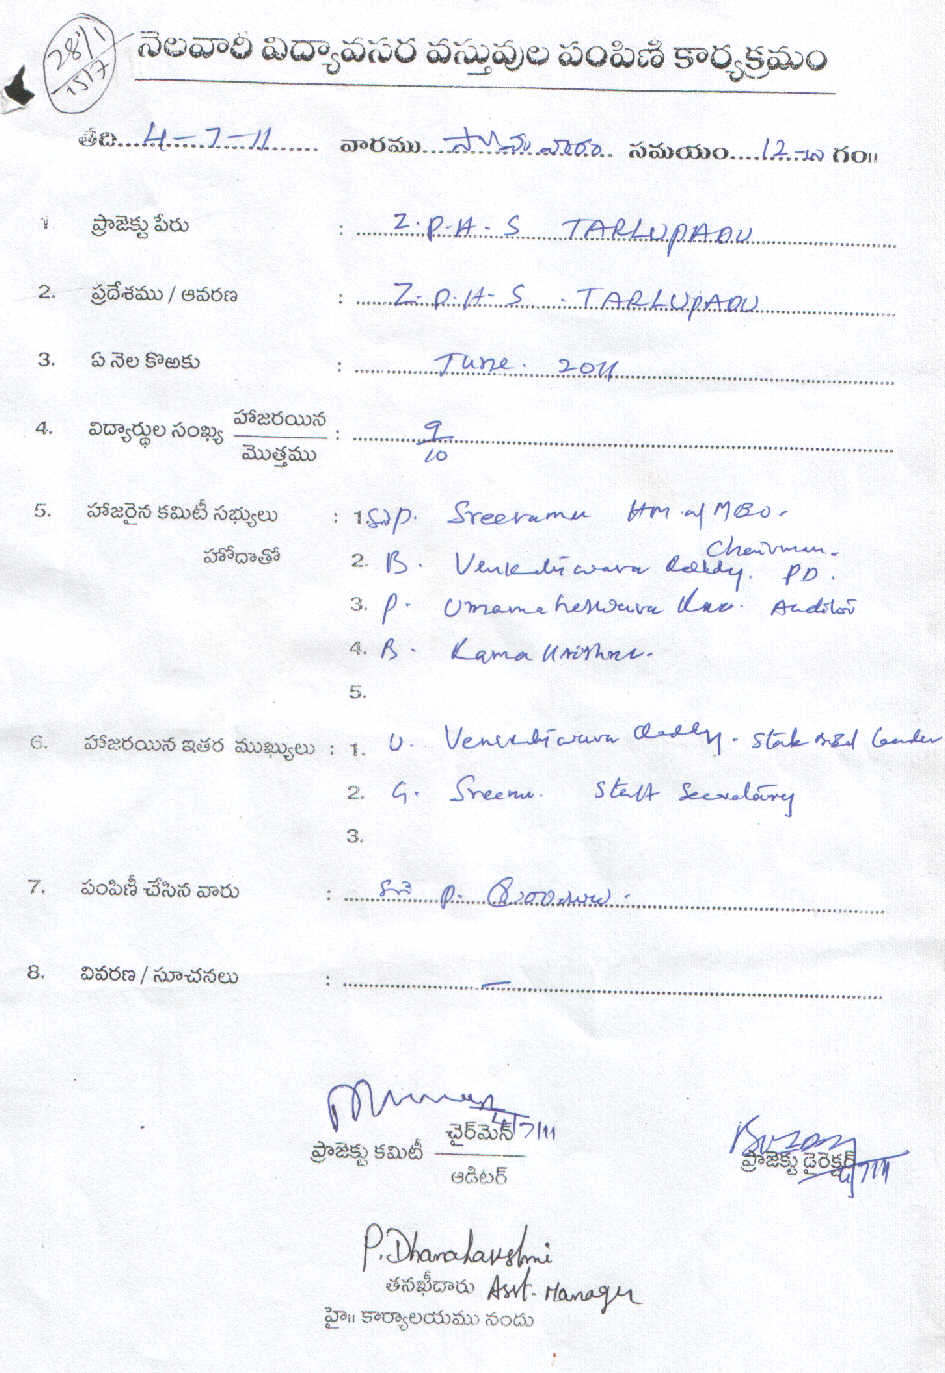 28/1
15/7
నెలవారీ విద్యావసర వస్తువుల పంపిణీ కార్యక్రమం
తేది....4-7-11.... వారము....సోమవారం.. సమయం....12-00 గం॥
1. ప్రాజెక్టు పేరు : Z.P.H.S TARLUPADU
2. ప్రదేశము / ఆవరణ : Z.P.H.S. TARLUPADU
3. ఏ నెల కొఱకు : June. 2011
4. విద్యార్థుల సంఖ్య హాజరయిన / మొత్తము : 9/10
5. హాజరైన కమిటీ సభ్యులు : 1. P. Sreeramu HM of MEO.
Chairman.
హోదాతో 2. B. Venkateswara Reddy. PD.
3. P. Umamaheswara Rao. Auditor
4. B. Rama Krishna.
5.
6. హాజరయిన ఇతర ముఖ్యులు : 1. U. Venkateswara Reddy. leader
2. G. Sreenu. Staff Secretary
3.
7. పంపిణీ చేసిన వారు : శ్రీ P. శ్రీరాములు.
8. వివరణ / సూచనలు : —
4/7/11
చైర్‌మెన్
ప్రాజెక్టు కమిటీ
ఆడిటర్
ప్రాజెక్టు డైరెక్టర్
4/7/11
P. Dhanalakshmi
తనఖీదారు Asst. Manager
హై॥ కార్యాలయము నందు